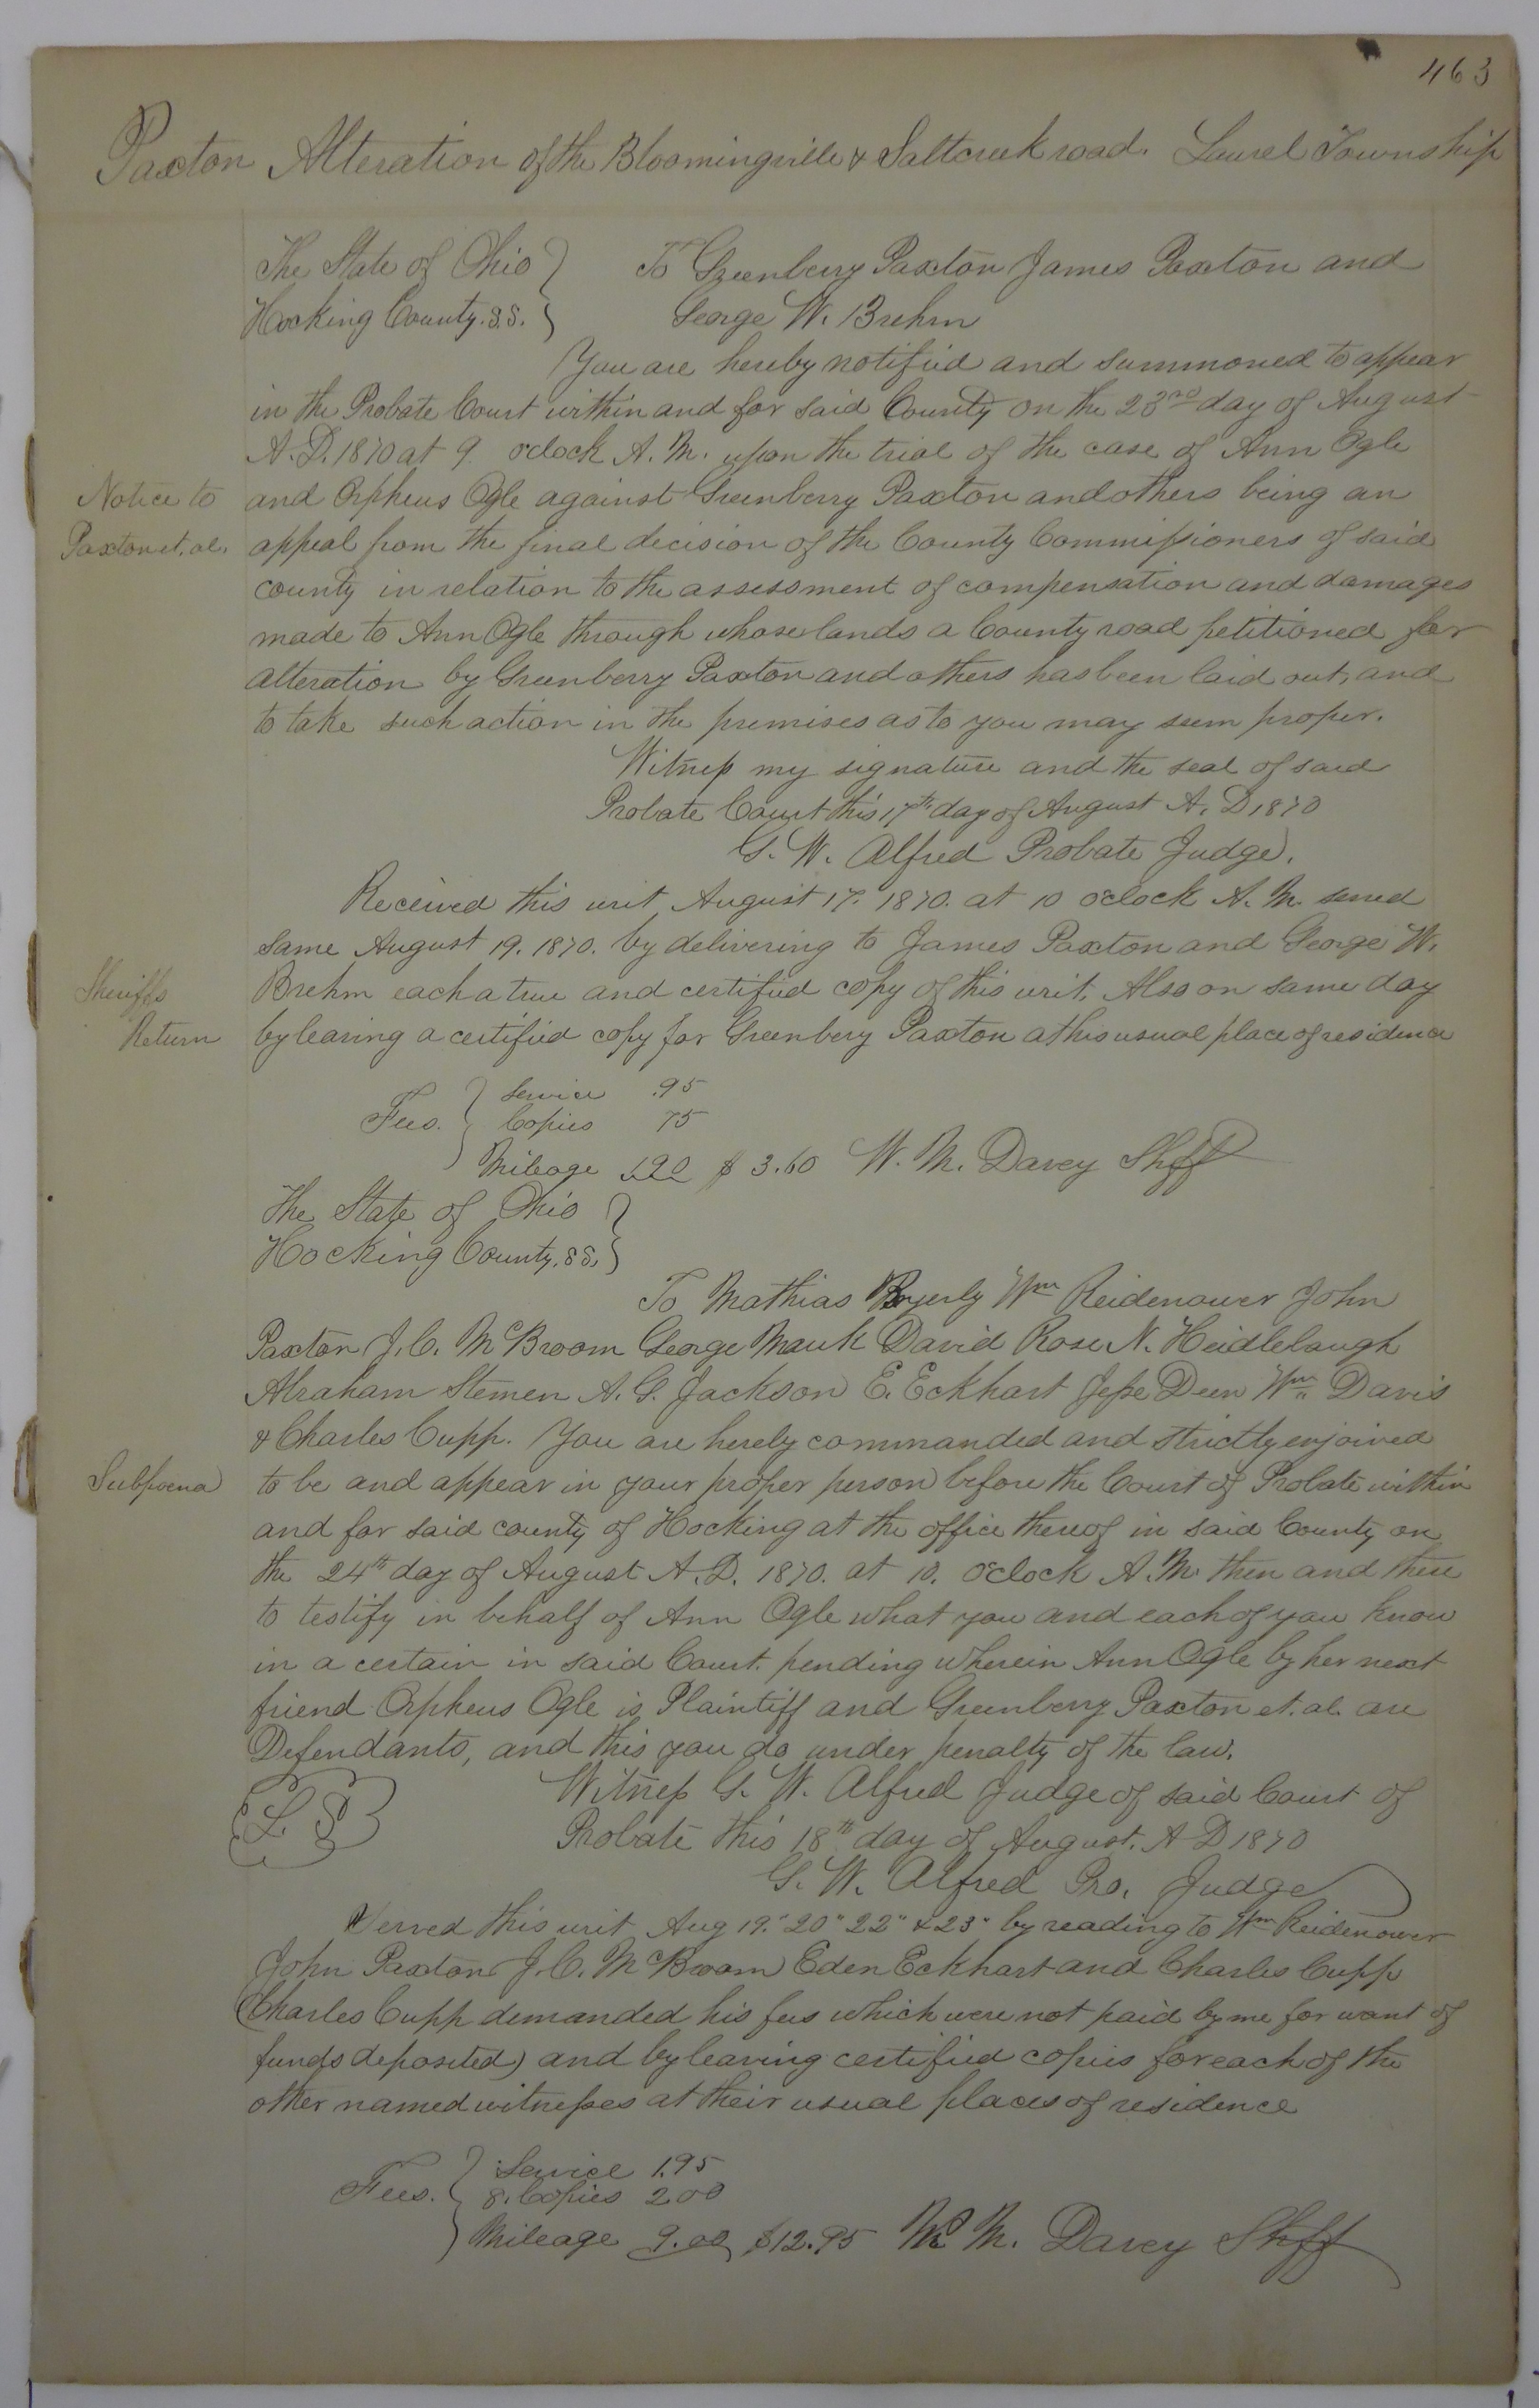 463
Paxton Alteration of the Bloomingville & Saltcreek road. Laurel Township
The State of Ohio } To Greenberry Paxton James Paxton and
Hocking County. S.S. } George W. Brehm
You are hereby notified and summoned to appear
in the Probate Court within and for said County on the 23rd day of August
A.D. 1870 at 9 oclock A.M. upon the trial of the case of Ann Ogle
Notice to and Orpheus Ogle against Greenberry Paxton and others being an
Paxton et. al. appeal from the final decision of the County Commissioners of said
county in relation to the assessment of compensation and damages
made to Ann Ogle through whose lands a County road petitioned for
alteration by Greenberry Paxton and others has been laid out, and
to take such action in the premises as to you may seem proper.
Witness my signature and the seal of said
Probate Court this 17th day of August A.D 1870
G. W. Alfred Probate Judge.
Received this writ August 17. 1870. at 10 oclock A.M. served
same August 19. 1870. by delivering to James Paxton and George W.
Sheriffs Brehm each a true and certified copy of this writ. Also on same day
Return by leaving a certified copy for Greenbery Paxton at his usual place of residence
Service .95
Fees. { Copies 75
Mileage 1.90 $ 3.60 W. M. Davey Shff
The State of Ohio }
Hocking County. SS. }
To Mathias Byerly Wm Reidenower John
Paxton J. C. McBroom George Mauk David Rose N. Heidlebaugh
Abraham Stemen A. G. Jackson E. Eckhart Jesse Deen Wm Davis
& Charles Cupp. You are hereby commanded and strictly enjoined
Subpoena to be and appear in your proper person before the Court of Probate within
and for said county of Hocking at the office thereof in said County on
the 24th day of August A.D. 1870. at 10. oclock A.M. then and there
to testify in behalf of Ann Ogle what you and each of you know
in a certain in said Court. pending wherein Ann Ogle by her next
friend Orpheus Ogle is Plaintiff and Greenberry Paxton et. al. are
Defendants, and this you do under penalty of the law.
Witness G. W. Alfred Judge of said Court of
L S Probate this 18th day of August. A D 1870
G. W. Alfred Pro. Judge
Served this writ Aug 19." 20" 22" & 23" by reading to Wm Reidenower
John Paxton J. C. McBroom Eden Eckhart and Charles Cupp
(Charles Cupp demanded his fees which were not paid by me for want of
funds deposited) and by leaving certified copies for each of the
other named witnesses at their usual places of residence
Service 1.95
Fees. { 8. Copies 2.00
Mileage 9.00 $12.95 W. M. Davey Shff